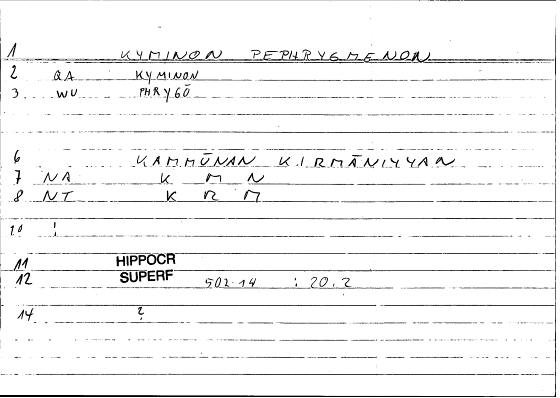 1 KYMINON PEPHRYGMENON
2 QA KYMINON
3 WU PHRYGŌ
6 KAMMŪNAN KIRMĀNIYYAN
7 NA K M N
8 NT K R M
10 !
11 HIPPOCR
12 SUPERF 502.14 : 20.2
14 ?